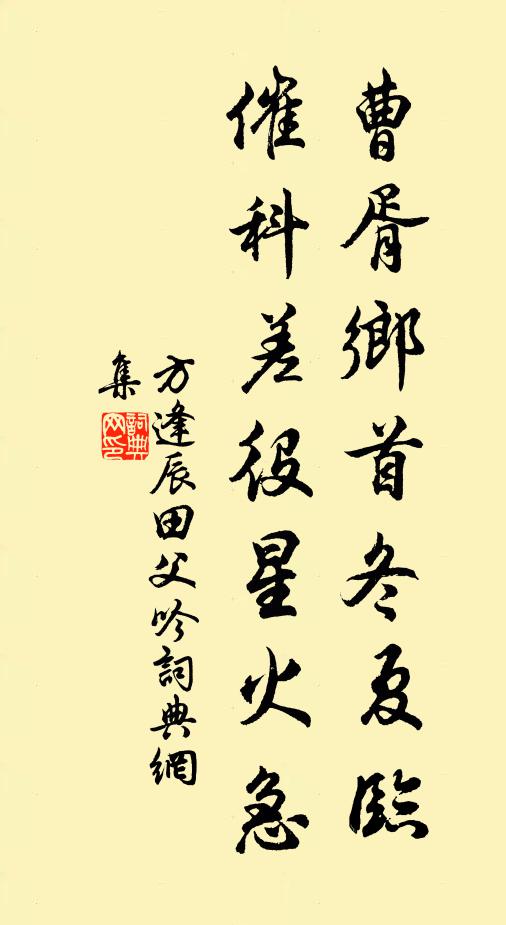 曹胥鄉首冬夏臨
催科差役星火急
方逢辰田父吟詞典網
集
詞典網印